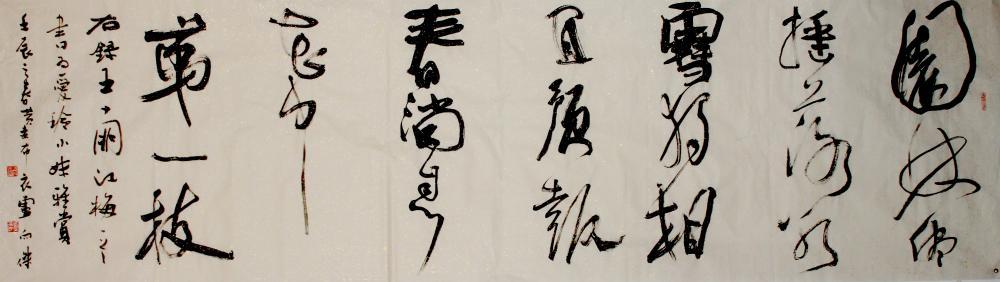 園林
搖落冰
雪獨相
宜預報
春消息
花中
第一枝
右錄王十朋江梅之
書以為愛玲小妹雅賞
壬辰之春黃安布衣